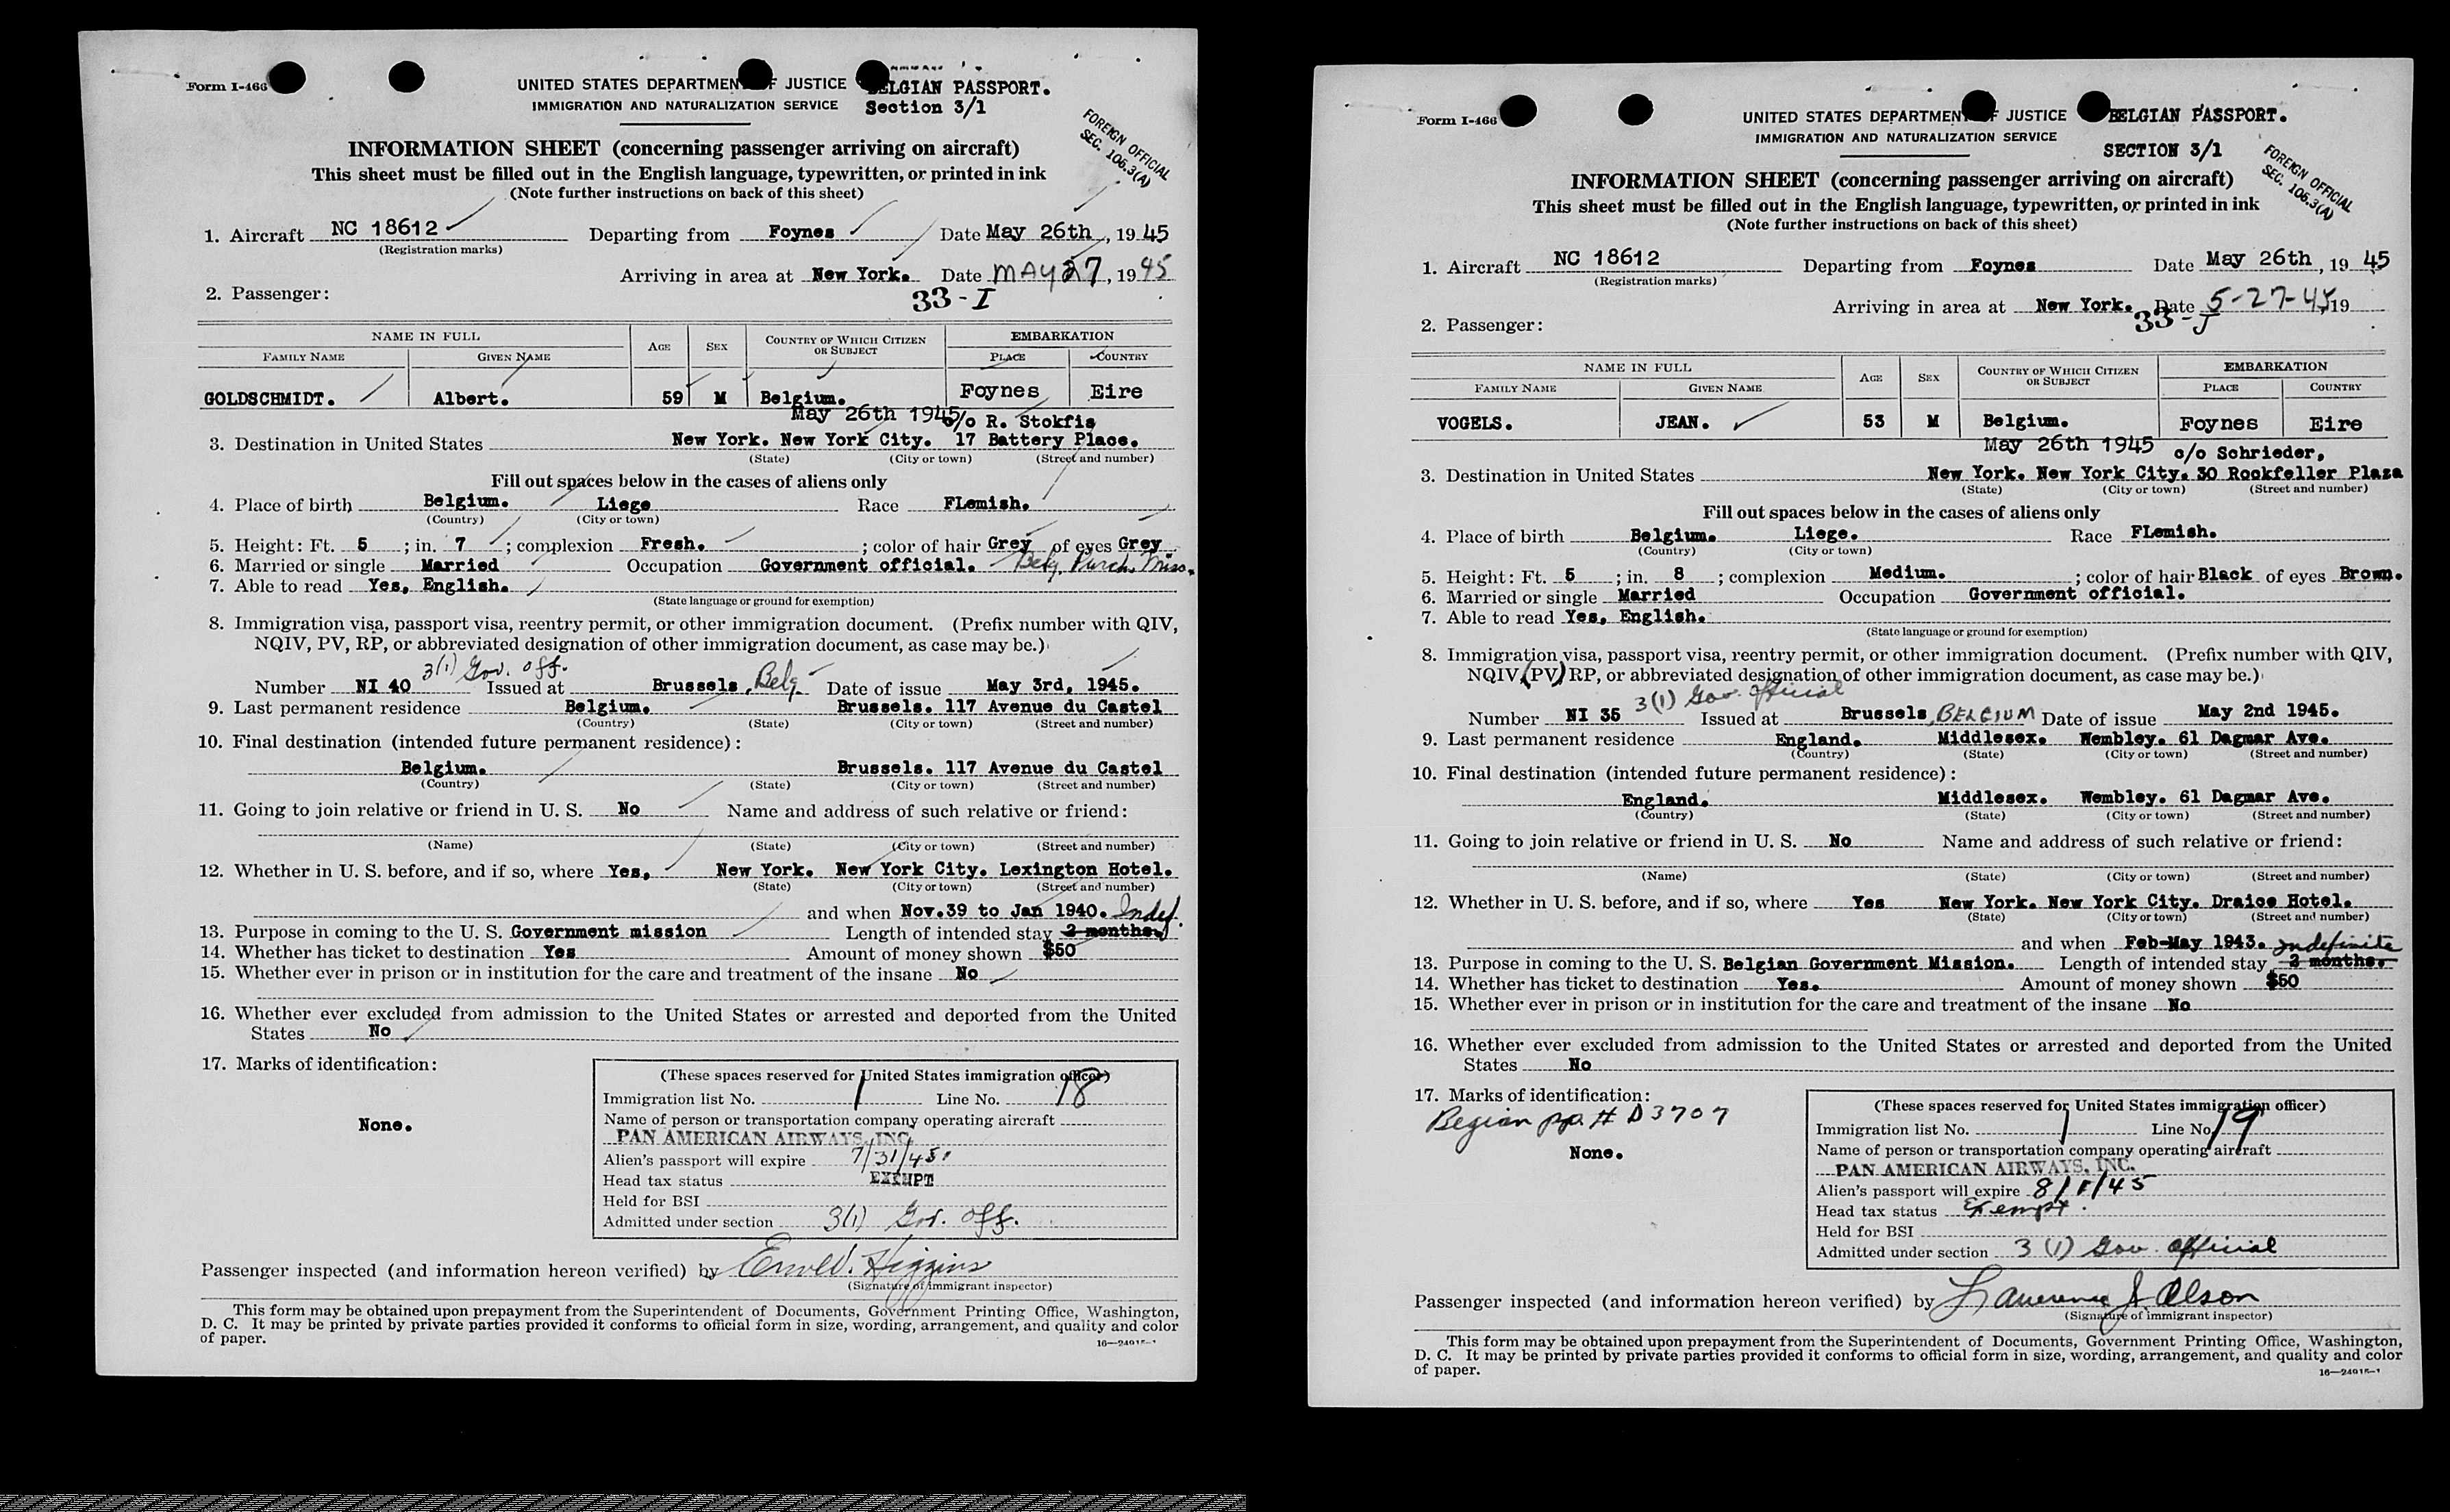 Form I-466
UNITED STATES DEPARTMENT OF JUSTICE
IMMIGRATION AND NATURALIZATION SERVICE
BELGIAN PASSPORT.
Section 3/1
FOREIGN OFFICIAL
SEC. 106.3(A)
INFORMATION SHEET (concerning passenger arriving on aircraft)
This sheet must be filled out in the English language, typewritten, or printed in ink
(Note further instructions on back of this sheet)
1. Aircraft NC 18612 Departing from Foynes Date May 26th, 1945
(Registration marks)
Arriving in area at New York. Date MAY 27, 1945
33-I
2. Passenger:
NAME IN FULL AGE SEX COUNTRY OF WHICH CITIZEN OR SUBJECT EMBARKATION
FAMILY NAME GIVEN NAME PLACE COUNTRY
GOLDSCHMIDT. Albert. 59 M Belgium. Foynes Eire
May 26th 1945 c/o R. Stokfis
3. Destination in United States New York. New York City. 17 Battery Place.
(State) (City or town) (Street and number)
Fill out spaces below in the cases of aliens only
4. Place of birth Belgium. Liege Race FLemish.
(Country) (City or town)
5. Height: Ft. 5; in. 7; complexion Fresh.; color of hair Grey of eyes Grey.
6. Married or single Married Occupation Government official. Belg. Purch. Miss.
7. Able to read Yes, English.
(State language or ground for exemption)
8. Immigration visa, passport visa, reentry permit, or other immigration document. (Prefix number with QIV,
NQIV, PV, RP, or abbreviated designation of other immigration document, as case may be.)
3(1) Gov. off.
Number NI 40 Issued at Brussels, Belg Date of issue May 3rd, 1945.
9. Last permanent residence Belgium. Brussels. 117 Avenue du Castel
(Country) (State) (City or town) (Street and number)
10. Final destination (intended future permanent residence):
Belgium. Brussels. 117 Avenue du Castel
(Country) (State) (City or town) (Street and number)
11. Going to join relative or friend in U. S. No Name and address of such relative or friend:
(Name) (State) (City or town) (Street and number)
12. Whether in U. S. before, and if so, where Yes, New York. New York City. Lexington Hotel.
(State) (City or town) (Street and number)
and when Nov.39 to Jan 1940. Indef.
13. Purpose in coming to the U. S. Government mission Length of intended stay 2 months.
14. Whether has ticket to destination Yes Amount of money shown $50
15. Whether ever in prison or in institution for the care and treatment of the insane No
16. Whether ever excluded from admission to the United States or arrested and deported from the United
States No
17. Marks of identification:
None.
(These spaces reserved for United States immigration officer)
Immigration list No. 1 Line No. 18
Name of person or transportation company operating aircraft
PAN AMERICAN AIRWAYS, INC.
Alien's passport will expire 7/31/45
Head tax status EXEMPT
Held for BSI
Admitted under section 3(1) Gov. off.
Passenger inspected (and information hereon verified) by Higgins
(Signature of immigrant inspector)
This form may be obtained upon prepayment from the Superintendent of Documents, Government Printing Office, Washington,
D. C. It may be printed by private parties provided it conforms to official form in size, wording, arrangement, and quality and color
of paper.
16—24915-1
Form I-466
UNITED STATES DEPARTMENT OF JUSTICE
IMMIGRATION AND NATURALIZATION SERVICE
BELGIAN PASSPORT.
SECTION 3/1
FOREIGN OFFICIAL
SEC. 106.3(A)
INFORMATION SHEET (concerning passenger arriving on aircraft)
This sheet must be filled out in the English language, typewritten, or printed in ink
(Note further instructions on back of this sheet)
1. Aircraft NC 18612 Departing from Foynes Date May 26th, 1945
(Registration marks)
Arriving in area at New York. Date 5-27-45, 19
33-J
2. Passenger:
NAME IN FULL AGE SEX COUNTRY OF WHICH CITIZEN OR SUBJECT EMBARKATION
FAMILY NAME GIVEN NAME PLACE COUNTRY
VOGELS. JEAN. 53 M Belgium. Foynes Eire
May 26th 1945 c/o Schrieder,
3. Destination in United States New York. New York City. 30 Rockfeller Plaza
(State) (City or town) (Street and number)
Fill out spaces below in the cases of aliens only
4. Place of birth Belgium. Liege. Race FLemish.
(Country) (City or town)
5. Height: Ft. 5; in. 8; complexion Medium.; color of hair Black of eyes Brown.
6. Married or single Married Occupation Government official.
7. Able to read Yes, English.
(State language or ground for exemption)
8. Immigration visa, passport visa, reentry permit, or other immigration document. (Prefix number with QIV,
NQIV, (PV) RP, or abbreviated designation of other immigration document, as case may be.)
3(1) Gov. official
Number NI 35 Issued at Brussels, BELGIUM Date of issue May 2nd 1945.
9. Last permanent residence England. Middlesex. Wembley. 61 Dagmar Ave.
(Country) (State) (City or town) (Street and number)
10. Final destination (intended future permanent residence):
England. Middlesex. Wembley. 61 Dagmar Ave.
(Country) (State) (City or town) (Street and number)
11. Going to join relative or friend in U. S. No Name and address of such relative or friend:
(Name) (State) (City or town) (Street and number)
12. Whether in U. S. before, and if so, where Yes New York. New York City. Draice Hotel.
(State) (City or town) (Street and number)
and when Feb-May 1943. indefinite
13. Purpose in coming to the U. S. Belgian Government Mission. Length of intended stay 2 months.
14. Whether has ticket to destination Yes. Amount of money shown $50
15. Whether ever in prison or in institution for the care and treatment of the insane No
16. Whether ever excluded from admission to the United States or arrested and deported from the United
States No
17. Marks of identification:
Begian pp. # D3707
None.
(These spaces reserved for United States immigration officer)
Immigration list No. 1 Line No. 19
Name of person or transportation company operating aircraft
PAN AMERICAN AIRWAYS, INC.
Alien's passport will expire 8/1/45
Head tax status Exempt.
Held for BSI
Admitted under section 3 (1) Gov. official
Passenger inspected (and information hereon verified) by Lawrence J. Olson
(Signature of immigrant inspector)
This form may be obtained upon prepayment from the Superintendent of Documents, Government Printing Office, Washington,
D. C. It may be printed by private parties provided it conforms to official form in size, wording, arrangement, and quality and color
of paper.
16—24915-1